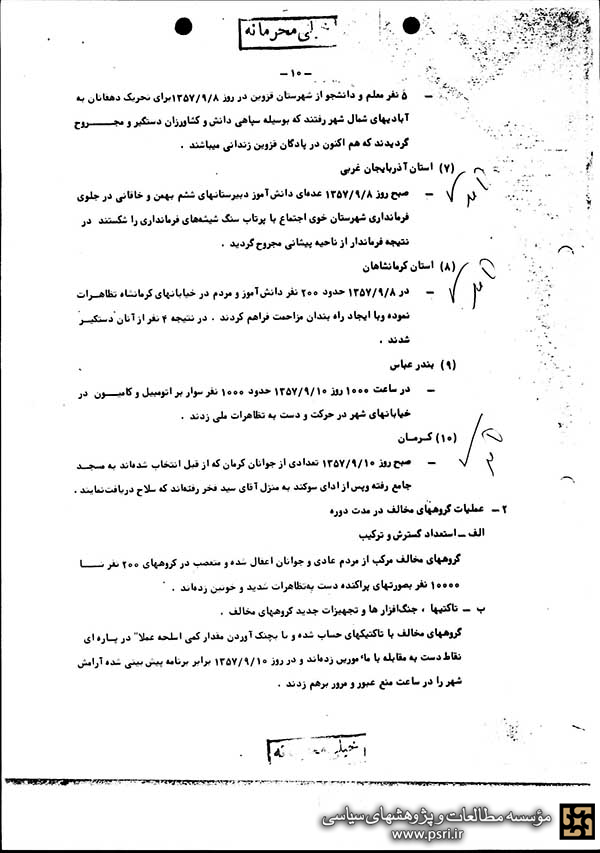 خیلی محرمانه
- ۱۰ -
- ۵ نفر معلم و دانشجو از شهرستان قزوین در روز ۱۳۵۷/۹/۸ برای تحریک دهقانان به
آبادیهای شمال شهر رفتند که بوسیله سپاهی دانش و کشاورزان دستگیر و مجـــروح
گردیدند که هم اکنون در پادگان قزوین زندانی میباشند .
(۷) استان آذربایجان غربی
- صبح روز ۱۳۵۷/۹/۸ عده‌ای دانش‌آموز دبیرستانهای ششم بهمن و خاقانی در جلوی
فرمانداری شهرستان خوی اجتماع با پرتاب سنگ شیشه‌های فرمانداری را شکستند در
نتیجه فرماندار از ناحیه پیشانی مجروح گردید .
(۸) استان کرمانشاهان
- در ۱۳۵۷/۹/۸ حدود ۲۰۰ نفر دانش‌آموز و مردم در خیابانهای کرمانشاه تظاهـرات
نموده وبا ایجاد راه بندان مزاحمت فراهم کردند . در نتیجه ۴ نفر از آنان دستگیـر
شدند .
(۹) بندر عباس
- در ساعت ۱۰۰۰ روز ۱۳۵۷/۹/۱۰ حدود ۱۰۰۰ نفر سوار بر اتومبیل و کامیــون در
خیابانهای شهر در حرکت و دست به تظاهرات ملی زدند .
(۱۰) کـرمـان
- صبح روز ۱۳۵۷/۹/۱۰ تعدادی از جوانان کرمان که از قبل انتخاب شده‌اند به مسجـد
جامع رفته وپس از ادای سوگند به منزل آقای سید فخر رفته‌اند که سلاح دریافت‌نمایند .
۲ - عملیات گروههای مخالف در مدت دوره
الف - استعداد گسترش و ترکیب
گروههای مخالف مرکب از مردم عادی و جوانان اغفال شده و متعصب در گروههای ۲۰۰ نفر تــا
۱۰۰۰۰ نفر بصورتهای پراکنده دست به‌تظاهرات شدید و خونین زده‌اند .
ب - تاکتیها ، جنگ‌افزار ها و تجهیزات جدید گروههای مخالف .
گروههای مخالف با تاکتیکهای حساب شده و با بچنگ آوردن مقدار کمی اسلحه عملا" در پاره ای
نقاط دست به مقابله با مأمورین زده‌اند و در روز ۱۳۵۷/۹/۱۰ برابر برنامه پیش بینی شده آرامش
شهر را در ساعت منع عبور و مرور برهم زدند .
مؤسسه مطالعات و پژوهشهای سیاسی
www.psri.ir